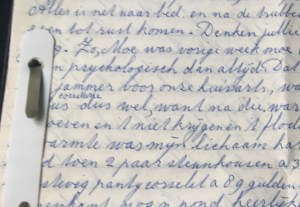 Alles is net naar bed. en na de drukte
even tot rust komen. Denken jullie
g. Zo, Moe was vorige week moe
n psychologisch dan altijd. Dat
jammer voor onze huisarts, wa
us dus wel, want na die war
oeven en 't niet krijgen en 't
armte was mijn lichaam
d toen 2 paar steunkousen a 3
stevig panty corselet a 89 gulden
nog 'n pond heerlijke